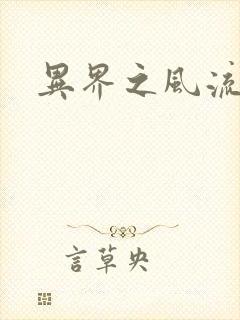 異界之風流
言草央